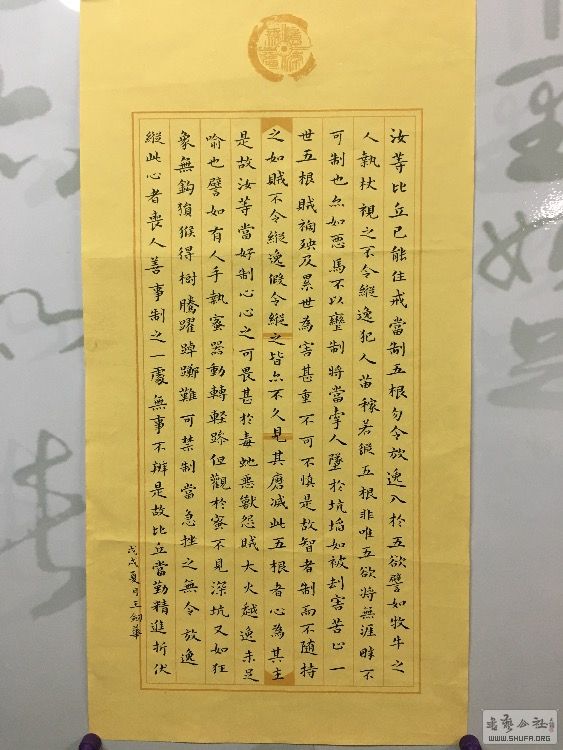 汝等比丘已能住戒當制五根勿令放逸入於五欲譬如牧牛之
人執杖視之不令縱逸犯人苗稼若縱五根非唯五欲將無涯畔不
可制也亦如惡馬不以轡制將當牽人墜於坑埳如被劫害苦止一
世五根賊禍殃及累世為害甚重不可不慎是故智者制而不隨持
之如賊不令縱逸假令縱之皆亦不久見其磨滅此五根者心為其主
是故汝等當好制心心之可畏甚於毒蛇惡獸怨賊大火越逸未足
喻也譬如有人手執蜜器動轉輕躁但觀於蜜不見深坑又如狂
象無鈎猿猴得樹騰躍踔躑難可禁制當急挫之無令放逸
縱此心者喪人善事制之一處無事不辦是故比丘當勤精進折伏
戊戌夏月王劍華
書藝公社
WWW.SHUFA.ORG